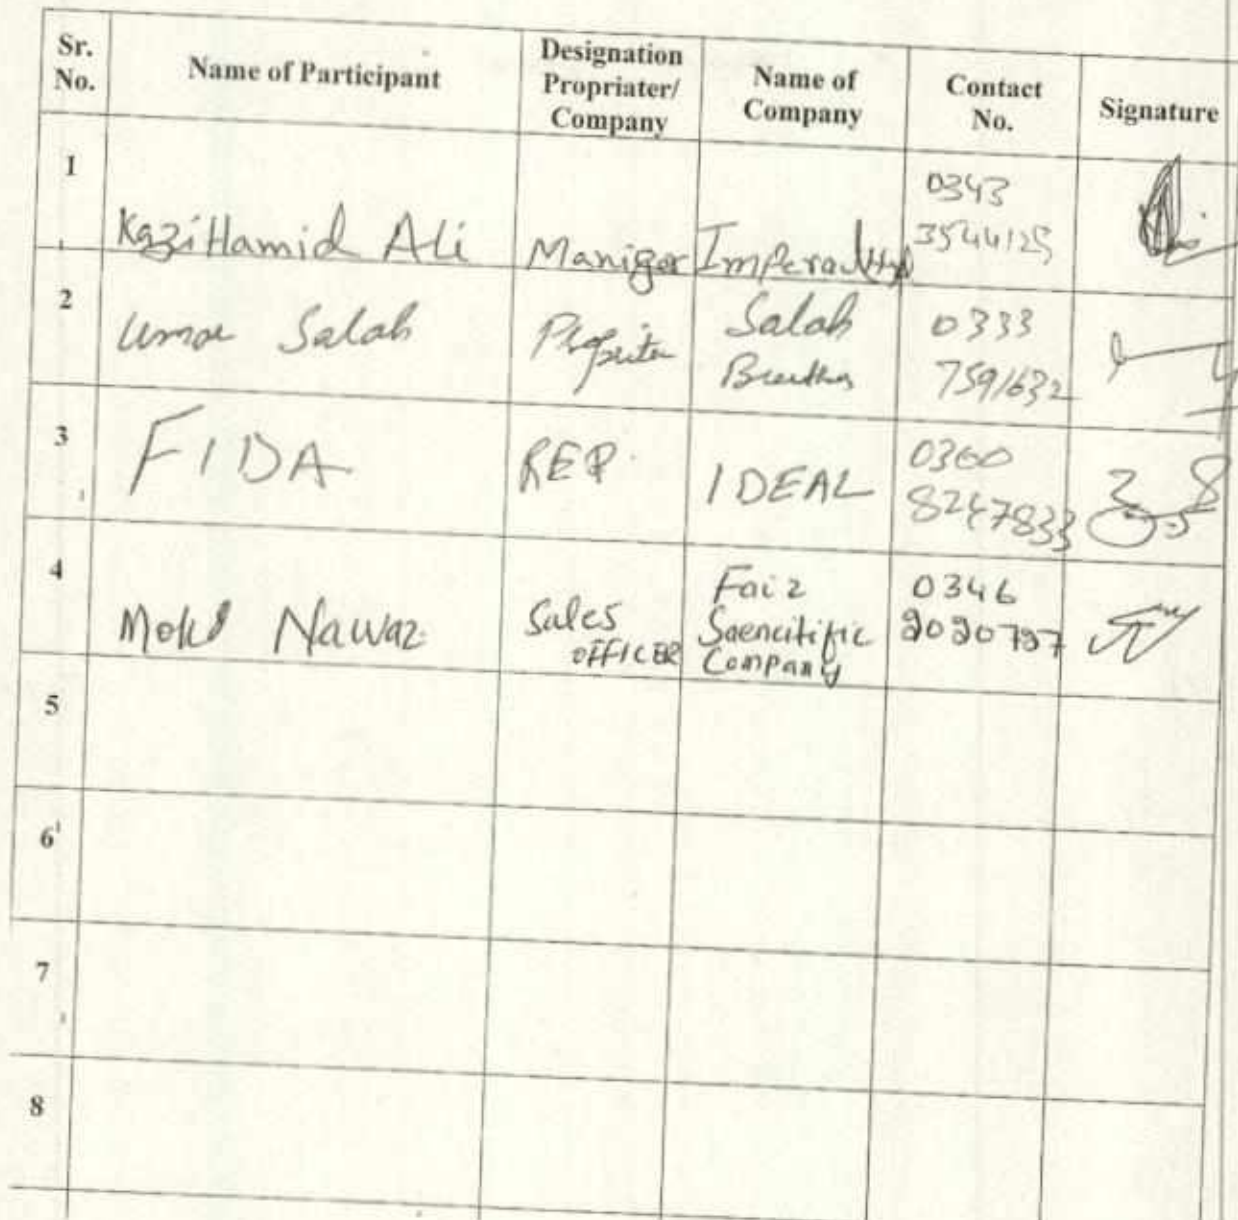 Sr. No. Name of Participant Designation Propriater/ Company Name of Company Contact No. Signature
1 Kazi Hamid Ali Maniger 0343 3544125
2 Salah Salah 0333 7591632
3 FIDA REP. IDEAL 0360 8247833
4 Mohd Nawaz Sales OFFICER Faiz Saencitific Company 0346
5
6
7
8